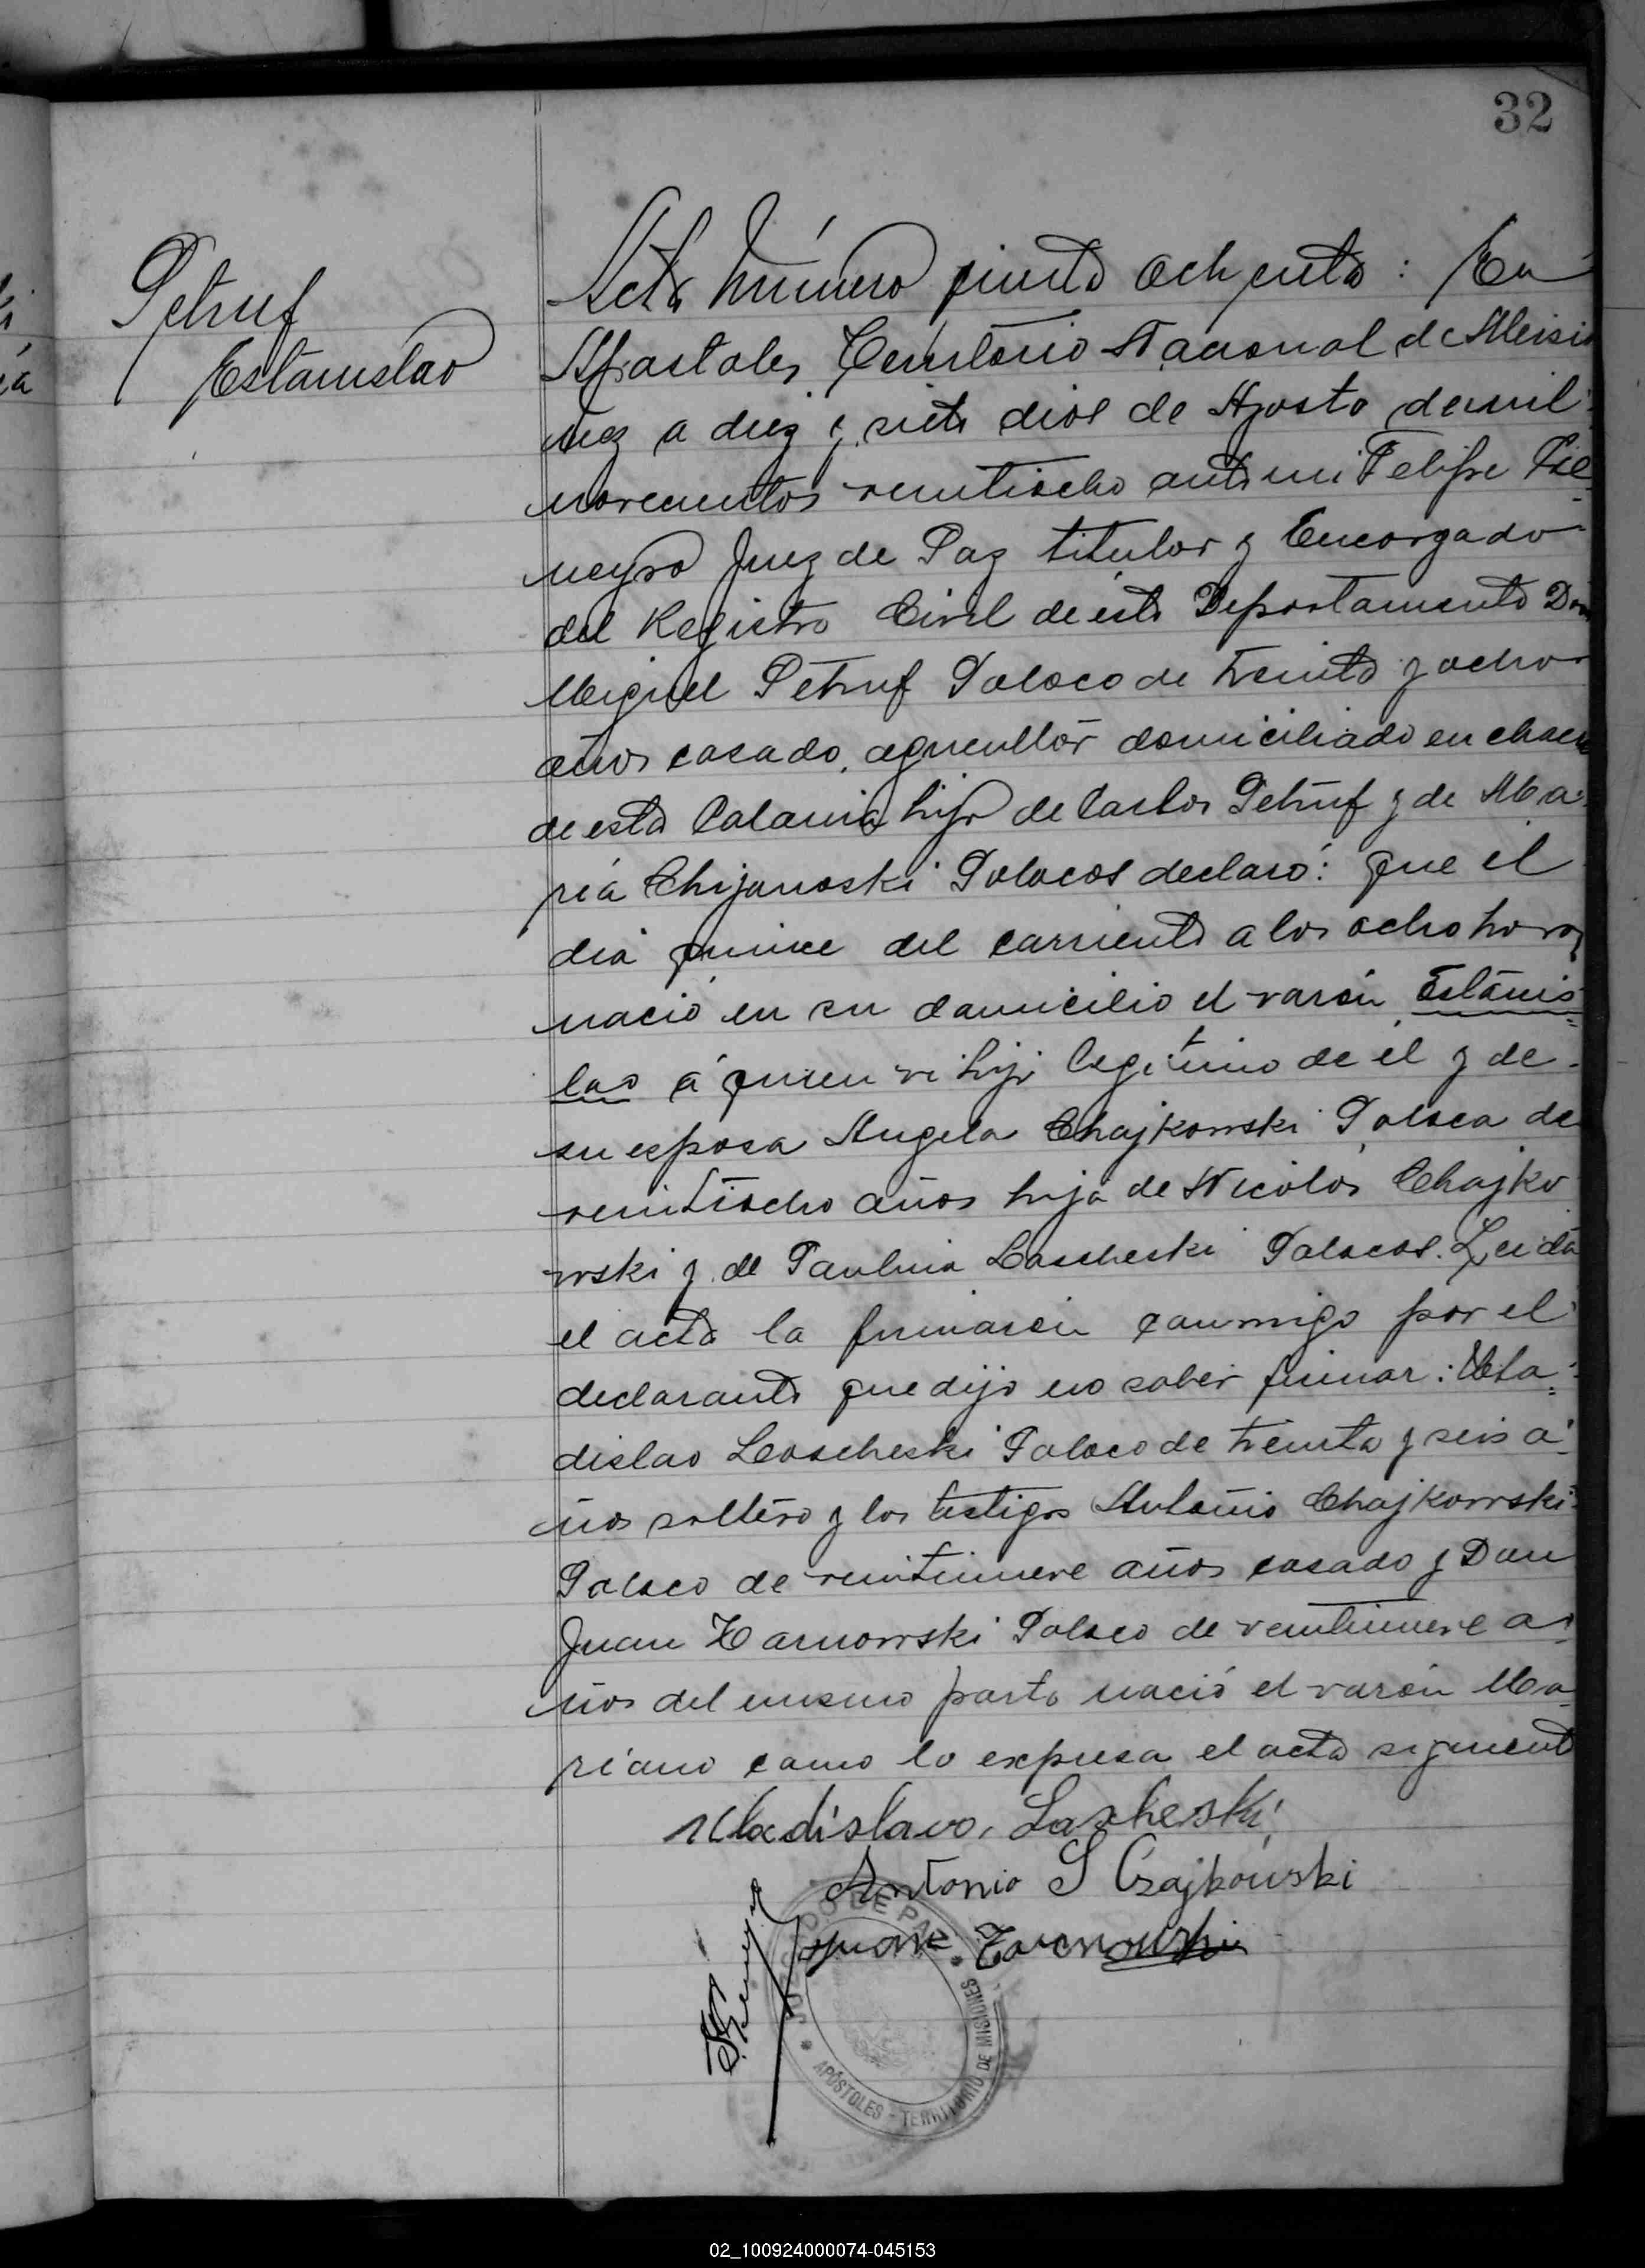 32
Petruf
Estanislao
Acta Número ciento ochenta: En
Apostoles Territorio Nacional de Misio
nes a diez y siete dias de Agosto de mil
novecientos veintiocho ante mi Felipe
neyro Juez de Paz titular y Encargado
del Registro Civil de este Departamento Don
Miguel Petruf Polaco de treinta y ocho
años casado, agricultor domiciliado en chacra
de esta Colonia hijo de Carlos Petruf y de Ma
ria Chijanoski Polacos declaró: que el
dia quince del corriente a las ocho horas
nació en su domicilio el varón Estanis
lao á quien vi hijo legitimo de él y de
su esposa Angela Chajkowski Polaca de
veintiocho años hija de Nicolás Chajko
wski y de Paulina Loscheski Polacos. Leida
el acta la firmaron conmigo por el
declarante que dijo no saber firmar: Vla=
dislao Loscheski Polaco de treinta y seis a
ños soltero y los testigos Antonio Chajkowski
Polaco de veintinueve años casado y Don
Juan Tarnowski Polaco de veintinueve a
ños del mismo parto nació el varón Ma
riano como lo expresa el acta siguiente
Uladislavo, Lascheski
Antonio S Czajkowski
Juan Tarnowski
JUZGADO DE PAZ
APÓSTOLES - TERRITORIO DE MISIONES
02_100924000074-045153